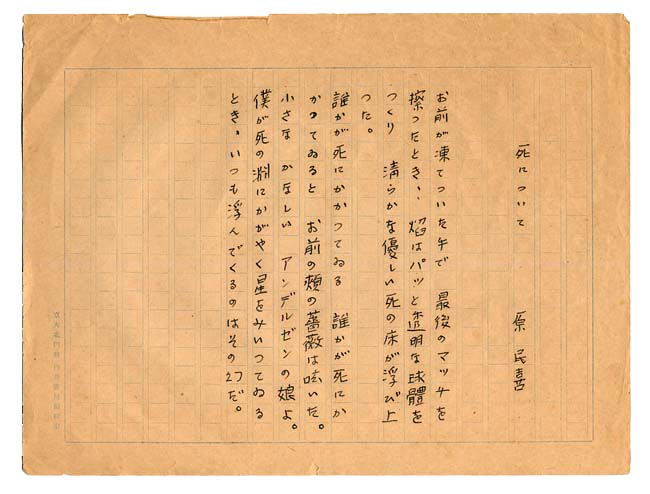 死について　原民喜
お前が凍てついた手で　最後のマッチを
擦つたとき、焔はパッと透明な球體を
つくり　清らかな優しい死の床が浮び上
つた。
誰かが死にかかつてゐる　誰かが死にか
かつてゐると　お前の頬の薔薇は呟いた。
小さな　かなしい　アンデルゼンの娘よ。
僕が死の淵にかがやく星をみいつてゐる
とき、いつも浮んでくるのはその幻だ。